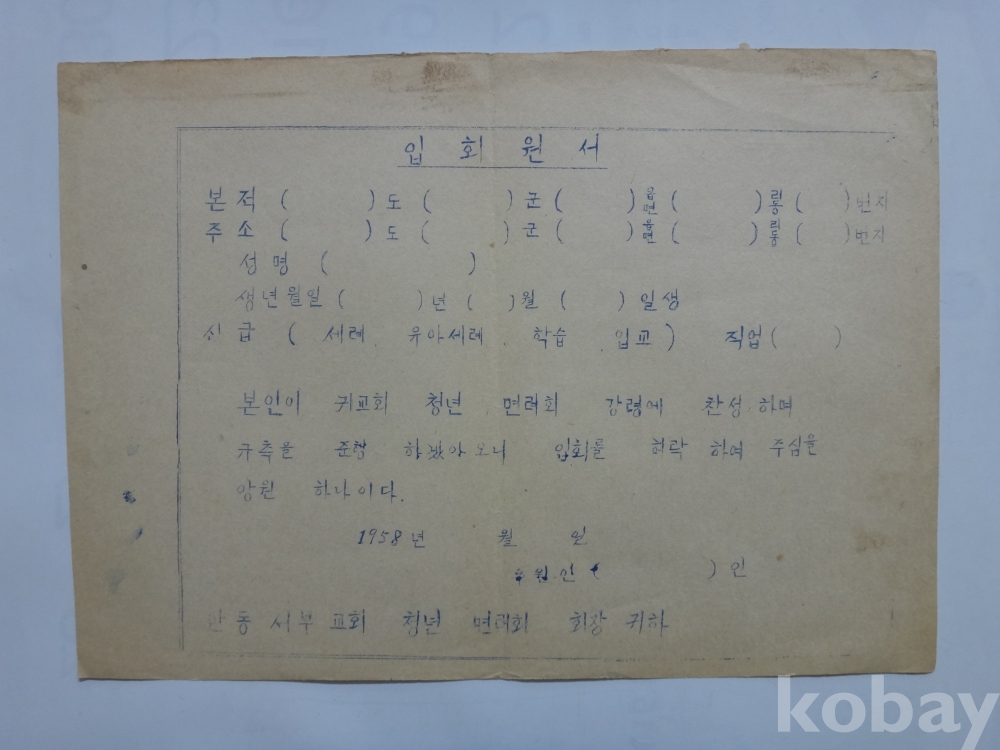 입회원서
본적 ( ) 도 ( ) 군 ( ) 읍면 ( ) 리동 ( ) 번지
주소 ( ) 도 ( ) 군 ( ) 읍면 ( ) 리동 ( ) 번지
성명 ( )
생년월일 ( ) 년 ( ) 월 ( ) 일생
신급 ( 세례 유아세례 학습 입교 ) 직업 ( )
본인이 귀교회 청년 면려회 강령에 찬성 하며
규측을 준행 하겠아오니 입회를 허락 하며 주심을
앙원 하나이다.
1958년 월 일
원인 ( ) 인
안동 서부 교회 청년 면려회 회장 귀하
kobay